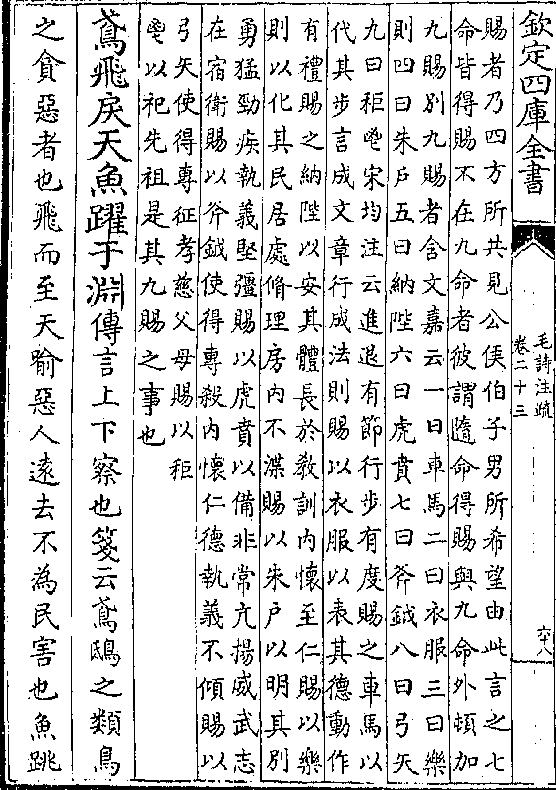 欽定四庫全書
毛詩注疏
卷二十三
六八
賜者乃四方所共見公侯伯子男所希望由此言之七
命皆得賜不在九命者彼謂隨命得賜與九命外頓加
九賜別九賜者含文嘉云一曰車馬二曰衣服三曰樂
則四曰朱戶五曰納陛六曰虎賁七曰斧鉞八曰弓矢
九曰秬鬯宋均注云進退有節行步有度賜之車馬以
代其步言成文章行成法則賜以衣服以表其德動作
有禮賜之納陛以安其體長於教訓內懷至仁賜以樂
則以化其民居處脩理房內不渫賜以朱戶以明其別
勇猛勁疾執義堅彊賜以虎賁以備非常亢揚威武志
在宿衛賜以斧鉞使得專殺內懷仁德執義不傾賜以
弓矢使得專征孝慈父母賜以秬
鬯以祀先祖是其九賜之事也
鳶飛戾天魚躍于淵傳言上下察也箋云鳶鴟之類鳥
之貪惡者也飛而至天喻惡人遠去不為民害也魚跳